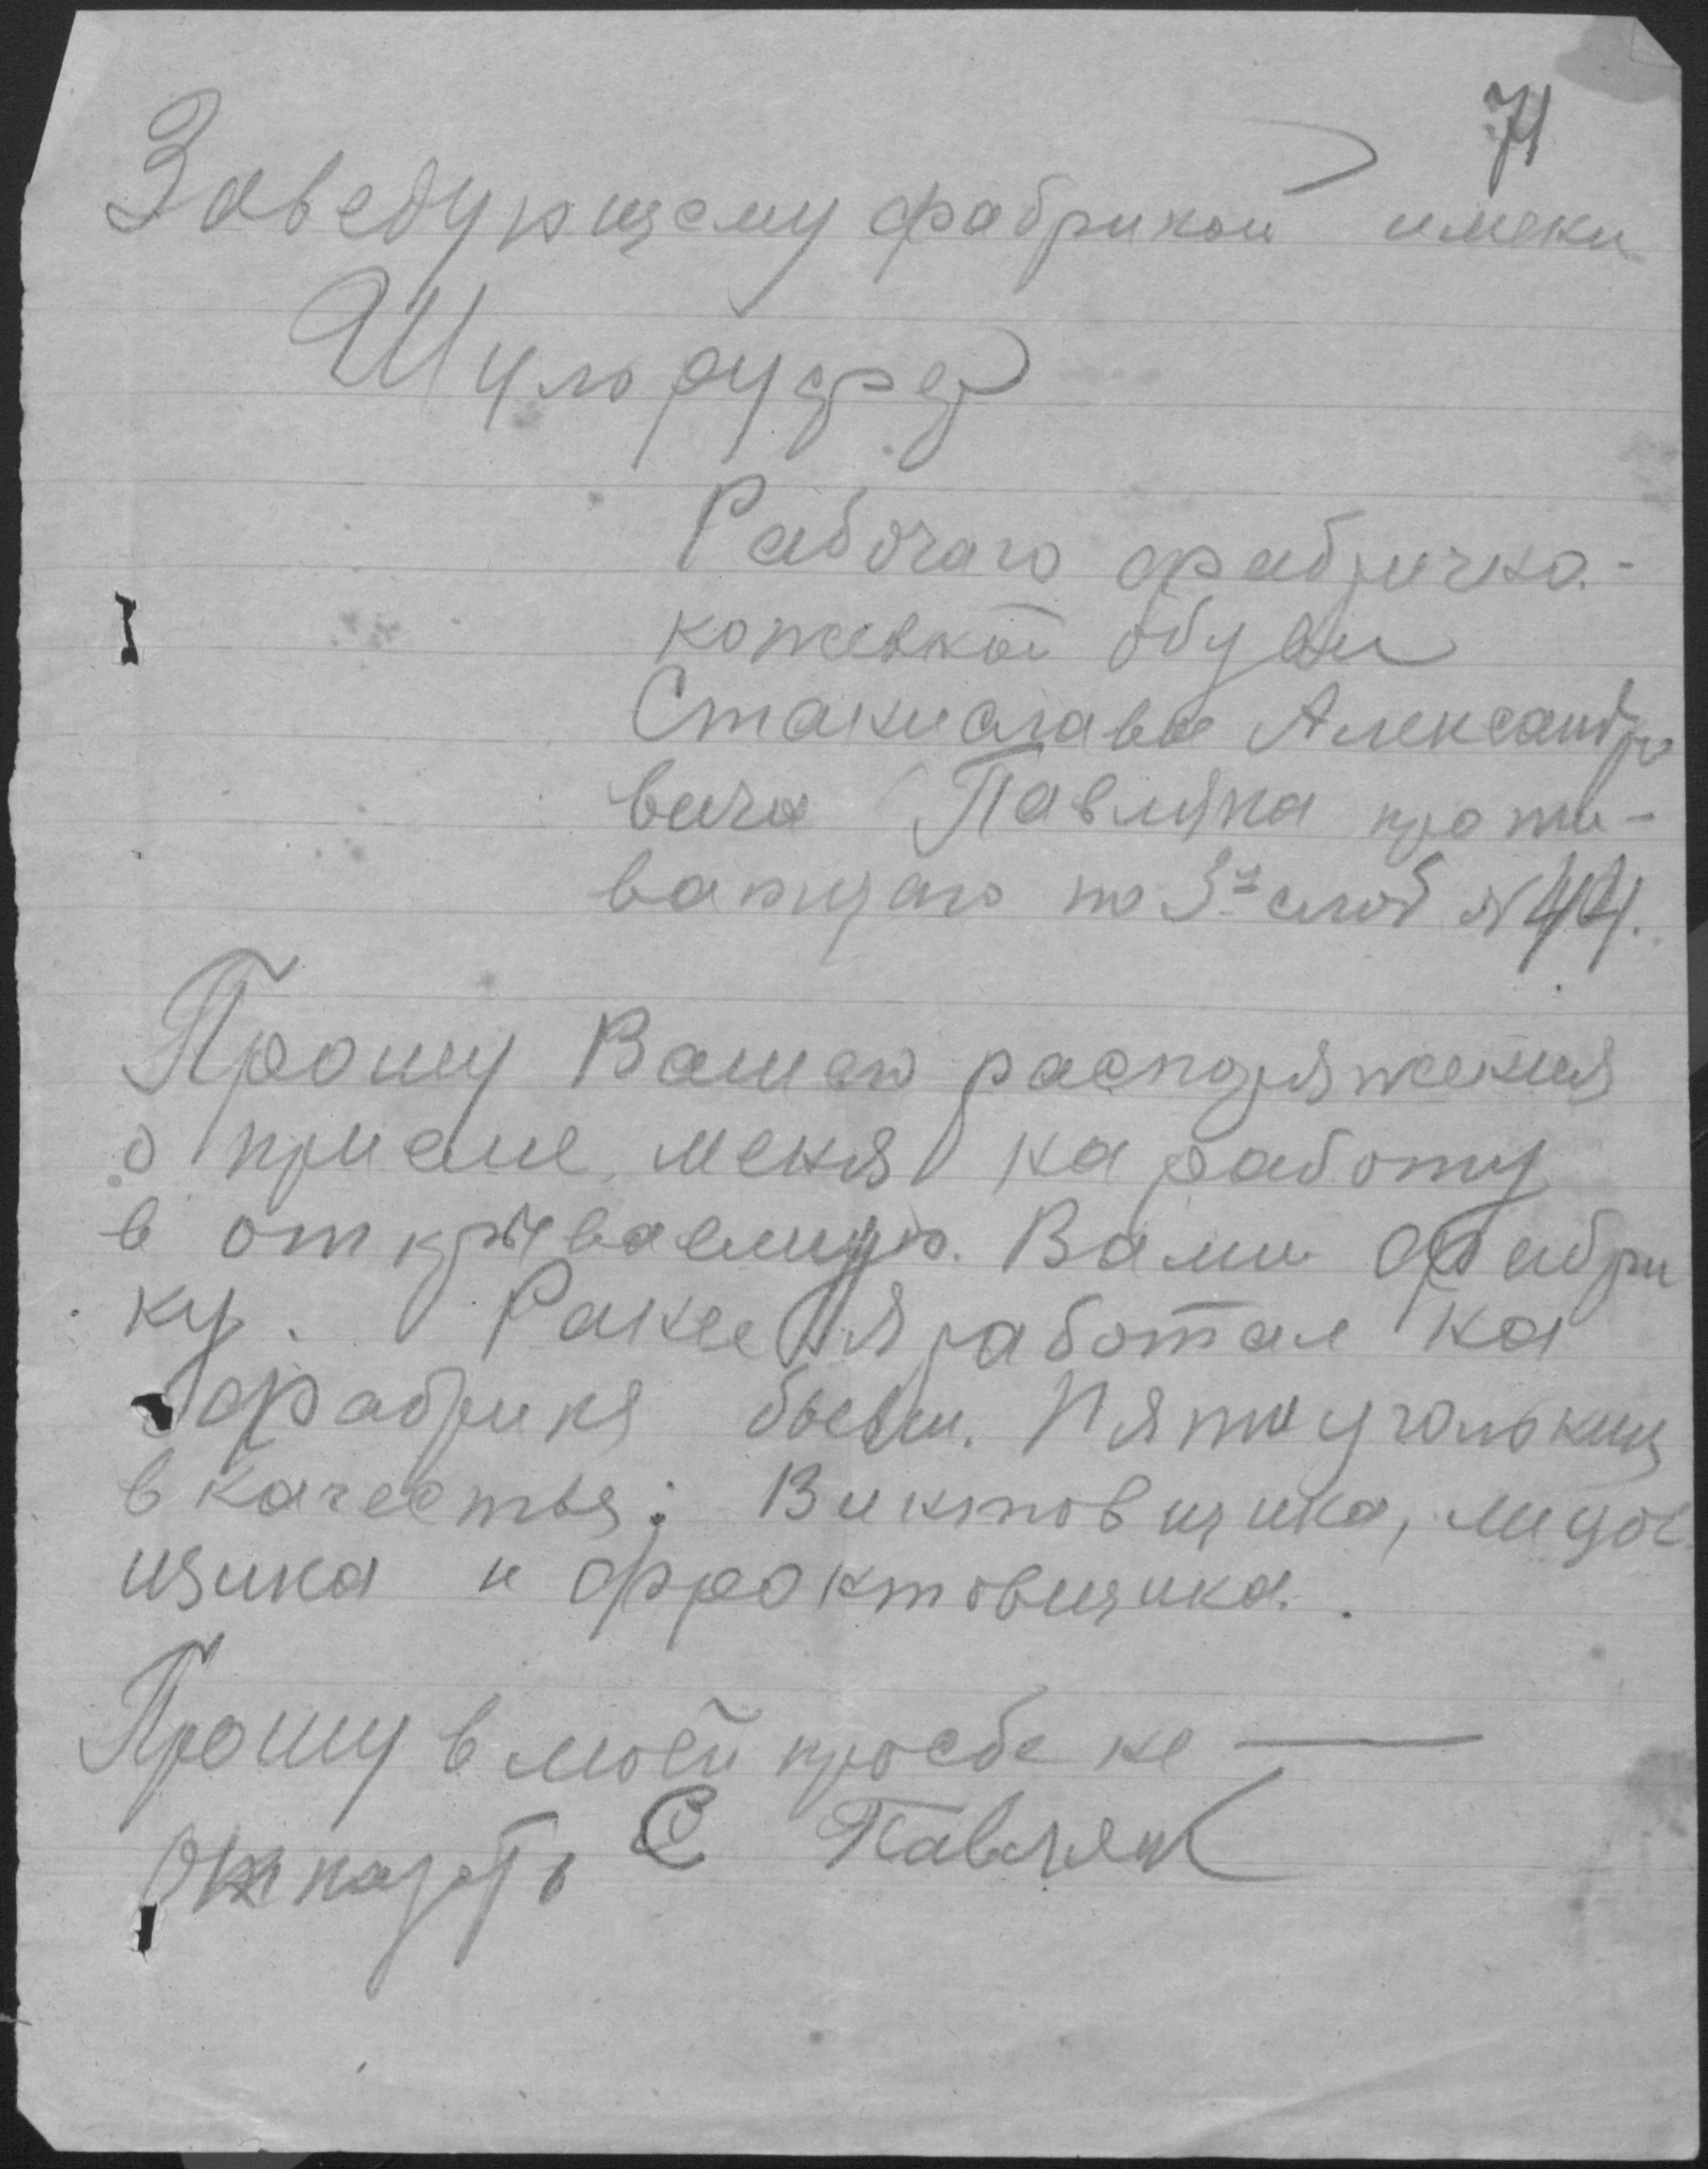 71
Заведующему фабрикой имени
Рабочаго фабрично-
кожевной обуви
Станислава Александро
вича Павляка прожи-
вающаго по 3й слоб № 44.
Прошу Вашего распоряжения
о приеме меня на работу
в открываемую Вами фабри
ку. Ранее я работал на
фабрики бывш. Пятиугольник
в качестве: Винтовщика,
щика и фронтовщика.
Прошу в моей просбе не —
отказать С Павляк